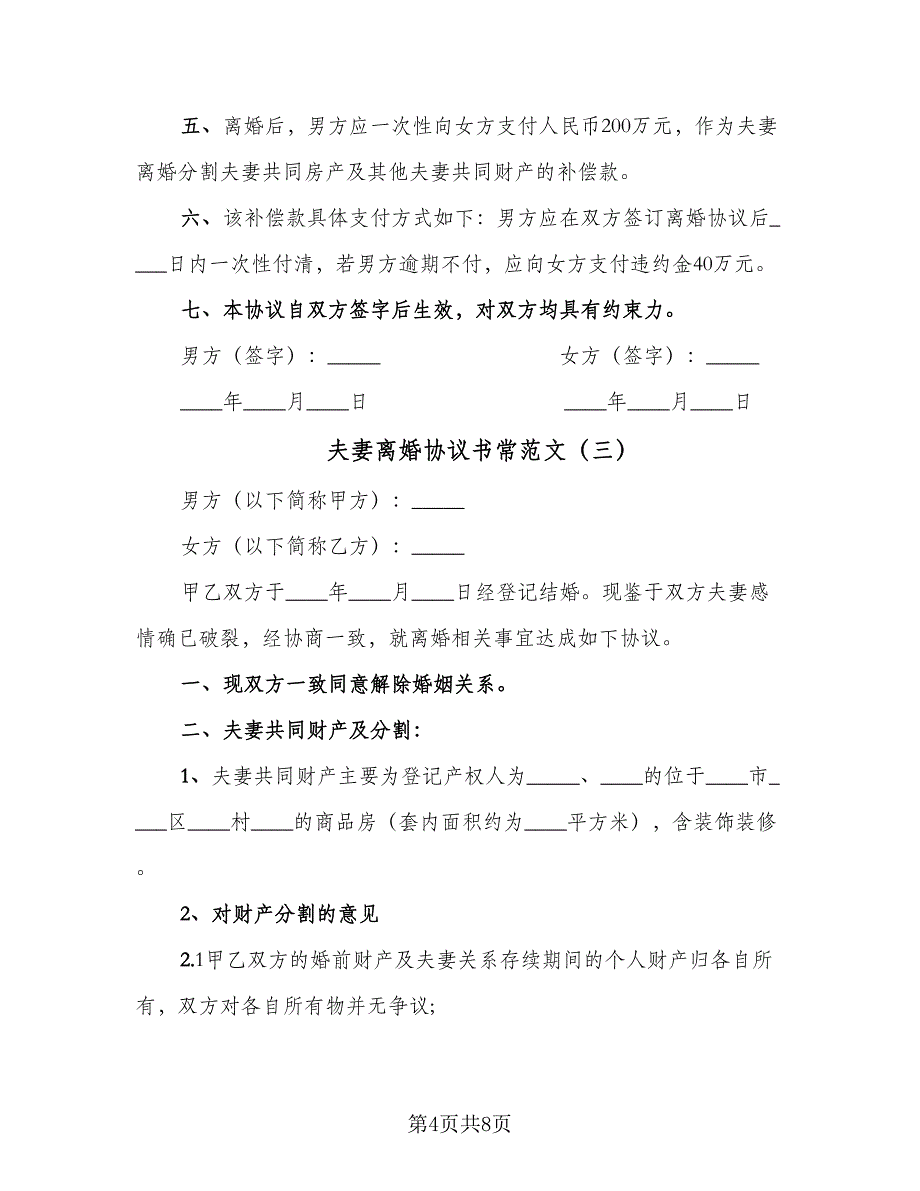 五、离婚后，男方应一次性向女方支付人民币200万元，作为夫妻
离婚分割夫妻共同房产及其他夫妻共同财产的补偿款。
六、该补偿款具体支付方式如下：男方应在双方签订离婚协议后_
___日内一次性付清，若男方逾期不付，应向女方支付违约金40万元。
七、本协议自双方签字后生效，对双方均具有约束力。
男方（签字）：_____ 女方（签字）：_____
____年____月____日 ____年____月____日
夫妻离婚协议书常范文（三）
男方（以下简称甲方）：_____
女方（以下简称乙方）：_____
甲乙双方于____年____月____日经登记结婚。现鉴于双方夫妻感
情确已破裂，经协商一致，就离婚相关事宜达成如下协议。
一、现双方一致同意解除婚姻关系。
二、夫妻共同财产及分割：
1、夫妻共同财产主要为登记产权人为_____、____的位于____市_
___区____村____的商品房（套内面积约为____平方米），含装饰装修
。
2、对财产分割的意见
2.1甲乙双方的婚前财产及夫妻关系存续期间的个人财产归各自所
有，双方对各自所有物并无争议;
第4页共8页